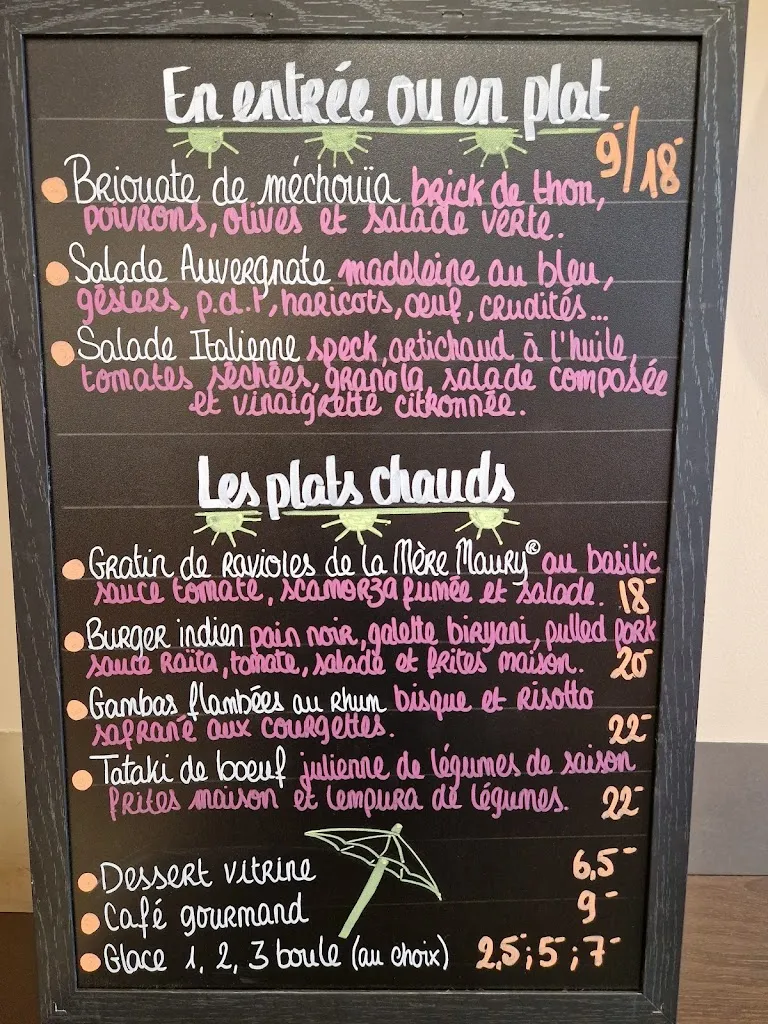 En entrée ou en plat
9-/18-
Briouate de méchouïa brick de thon,
poivrons, olives et salade verte.
Salade Auvergnate madeleine au bleu,
gésiers, p.d.t, haricots, œuf, crudités...
Salade Italienne speck, artichaud à l'huile,
tomates séchées, granola, salade composée
et vinaigrette citronnée.
Les plats chauds
Gratin de ravioles de la Mère Maury® au basilic
sauce tomate, scamorza fumée et salade. 18-
Burger indien pain noir, galette biryani, pulled pork
sauce Raïta, tomate, salade et frites maison. 20-
Gambas flambées au Rhum bisque et risotto
safrané aux courgettes. 22-
Tataki de boeuf julienne de légumes de saison
frites maison et tempura de légumes. 22-
Dessert vitrine 6,5-
Café gourmand 9-
Glace 1, 2, 3 boule (au choix) 2,5-; 5-; 7-